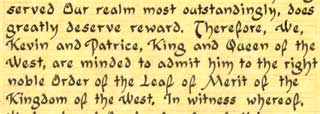 served Our realm most outstandingly, does
greatly deserve reward. Therefore, We,
Kevin and Patrice, King and Queen of the
West, are minded to admit him to the right
noble Order of the Leaf of Merit of the
Kingdom of the West. In witness whereof,